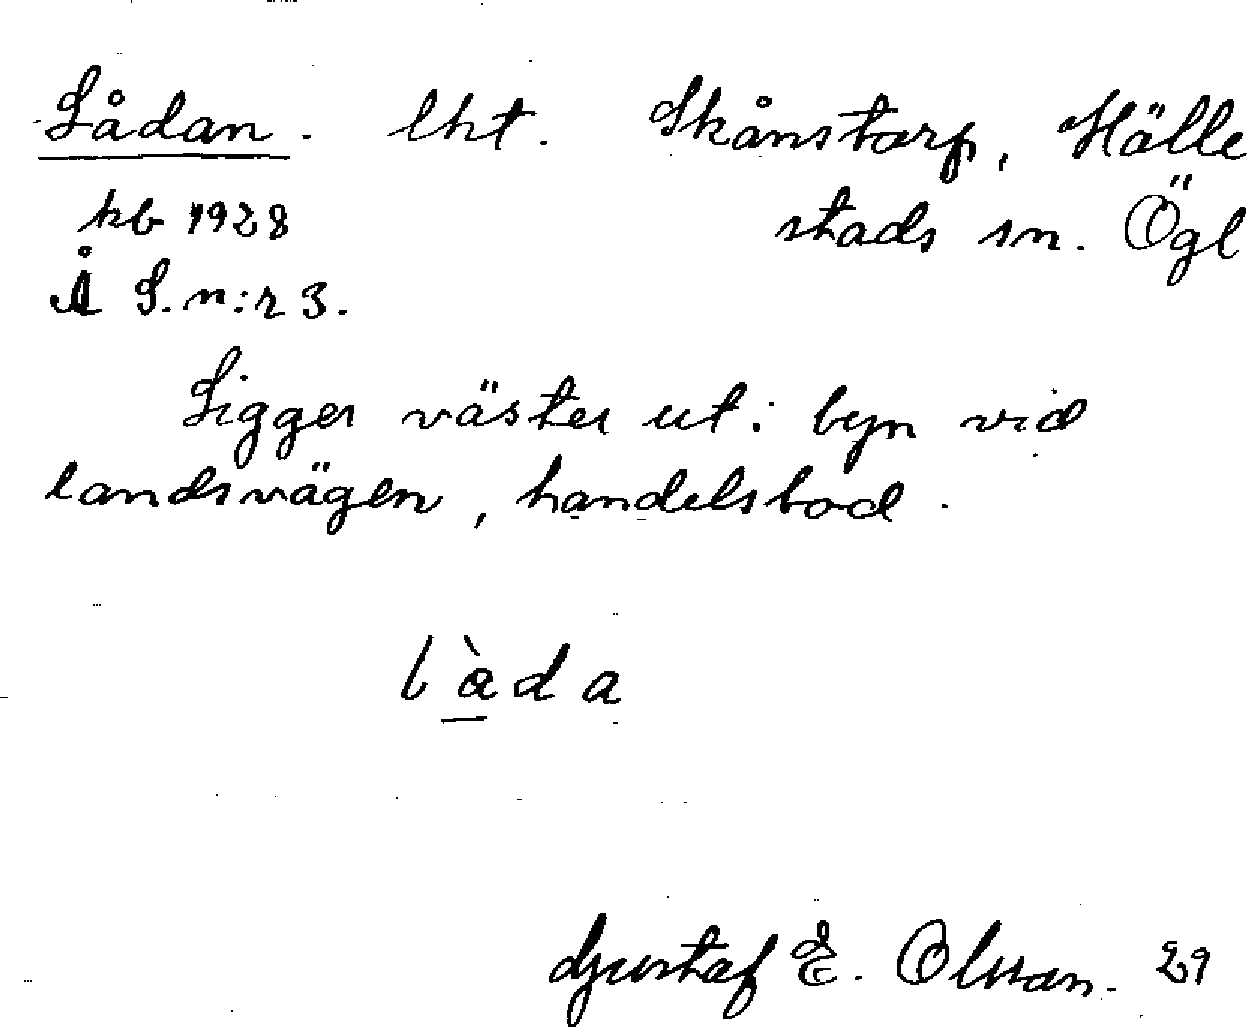 Lådan. lht. Skånstorp, Hälle
kb 1928 stads sn. Ögl
Å S. n:r 3.
Ligger väster ut i byn vid
landsvägen, handelsbod.
låda
Gustaf E. Olsson. 29